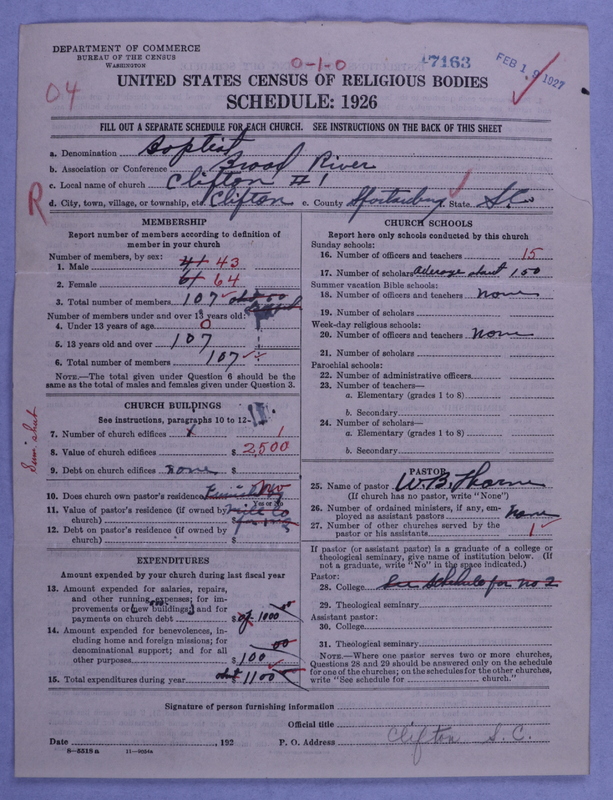 DEPARTMENT OF COMMERCE
BUREAU OF THE CENSUS
WASHINGTON
0-1-0
7163
FEB 19 1927
04
UNITED STATES CENSUS OF RELIGIOUS BODIES
SCHEDULE: 1926
FILL OUT A SEPARATE SCHEDULE FOR EACH CHURCH. SEE INSTRUCTIONS ON THE BACK OF THIS SHEET
a. Denomination Baptist
b. Association or Conference Broad River
c. Local name of church Clifton #1
R
d. City, town, village, or township, etc. Clifton e. County Spartanburg State S.C.
MEMBERSHIP
Report number of members according to definition of
member in your church
Number of members, by sex:
1. Male 41 43
2. Female 61 64
3. Total number of members 107
Number of members under and over 13 years old:
4. Under 13 years of age 0
5. 13 years old and over 107
6. Total number of members 107
NOTE.—The total given under Question 6 should be the
same as the total of males and females given under Question 3.
CHURCH BUILDINGS
See instructions, paragraphs 10 to 12
7. Number of church edifices 1
8. Value of church edifices $ 2500
9. Debt on church edifices none $
10. Does church own pastor's residence No
Yes or No
11. Value of pastor's residence (if owned by
church) $
12. Debt on pastor's residence (if owned by
church) $
EXPENDITURES
Amount expended by your church during last fiscal year
13. Amount expended for salaries, repairs,
and other running expenses; for im-
provements or new buildings; and for
payments on church debt $ 1000 00
14. Amount expended for benevolences, in-
cluding home and foreign missions; for
denominational support; and for all
other purposes $ 100 00
15. Total expenditures during year $ 1100
CHURCH SCHOOLS
Report here only schools conducted by this church
Sunday schools:
16. Number of officers and teachers 15
17. Number of scholars average about 150
Summer vacation Bible schools:
18. Number of officers and teachers none
19. Number of scholars
Week-day religious schools:
20. Number of officers and teachers none
21. Number of scholars
Parochial schools:
22. Number of administrative officers
23. Number of teachers—
a. Elementary (grades 1 to 8)
b. Secondary
24. Number of scholars—
a. Elementary (grades 1 to 8)
b. Secondary
PASTOR
25. Name of pastor W. B. Thorne
(If church has no pastor, write "None")
26. Number of ordained ministers, if any, em-
ployed as assistant pastors none
27. Number of other churches served by the
pastor or his assistants 1
If pastor (or assistant pastor) is a graduate of a college or
theological seminary, give name of institution below. (If
not a graduate, write "No" in the space indicated.)
Pastor:
28. College See Schedule for no 2
29. Theological seminary
Assistant pastor:
30. College
31. Theological seminary
NOTE.—Where one pastor serves two or more churches,
Questions 28 and 29 should be answered only on the schedule
for one of the churches; on the schedules for the other churches,
write "See schedule for church."
Signature of person furnishing information
Official title
Date , 192 P. O. Address Clifton S.C.
8-5518a 11-9054a